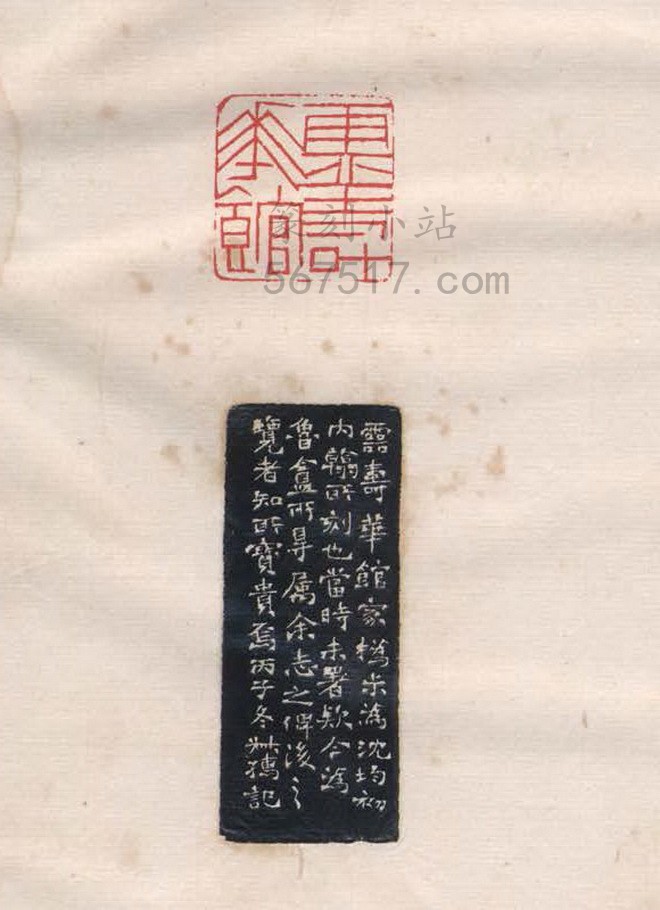 靈壽華館
篆刻小站
567517.com
靈壽華館家撝未為沈均初
內翰所刻也當時未署款今為
魯盦所得属余志之俾後之
覽者知所寶貴焉丙子冬㧑記